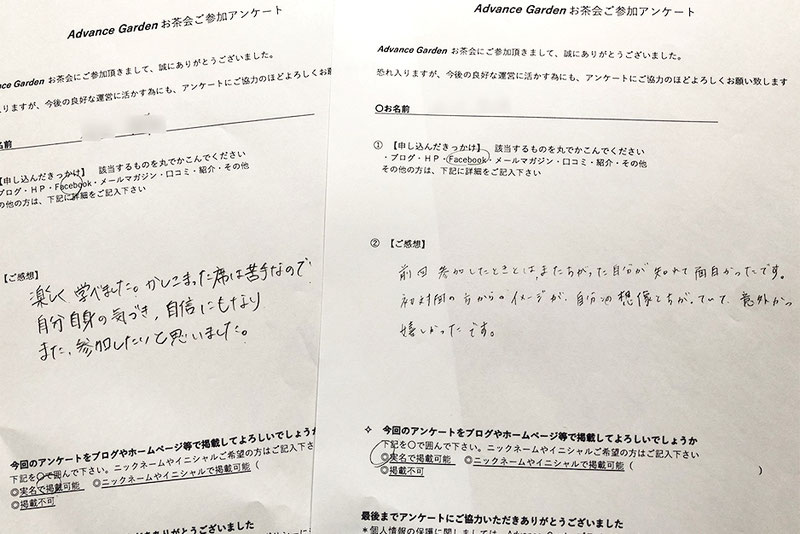 Advance Garden お茶会ご参加アンケート
Advance Garden お茶会にご参加頂きまして、誠にありがとうございました。
りますが、今後の良好な運営に活かす為にも、アンケートにご協力のほどよろしくお願
名前
【申し込んだきっかけ】 該当するものを丸でかこんでください
ブログ・HP・Facebook・メールマガジン・口コミ・紹介・その他
の他の方は、下記に詳細をご記入下さい
【ご感想】
楽しく学べました。かしこまった席は苦手なので
自分自身の気づき、自信にもなり
また、参加したいと思いました。
今回のアンケートをブログやホームページ等で掲載してよろしいでしょうか
下記を〇で囲んで下さい。ニックネームやイニシャルご希望の方はご記入下さ
◎実名で掲載可能 ◎ニックネームやイニシャルで掲載可能(
◎掲載不可
ありがとうございました
Advance Garden お茶会ご参加アンケート
Advance Garden お茶会にご参加頂きまして、誠にありがとうございました。
恐れ入りますが、今後の良好な運営に活かす為にも、アンケートにご協力のほどよろしくお願い致します
〇お名前
① 【申し込んだきっかけ】 該当するものを丸でかこんでください
・ブログ・HP・Facebook・メールマガジン・口コミ・紹介・その他
その他の方は、下記に詳細をご記入下さい
② 【ご感想】
前回参加したときとは、またちがった自分が知れて面白かったです。
初対面の方からのイメージが、自分の想像とちがっていて、意外かつ
嬉しかったです。
✧ 今回のアンケートをブログやホームページ等で掲載してよろしいでしょうか
下記を〇で囲んで下さい。ニックネームやイニシャルご希望の方はご記入下さい
◎実名で掲載可能 ◎ニックネームやイニシャルで掲載可能( )
◎掲載不可
最後までアンケートにご協力いただきありがとうございました
*個人情報の保護に関しましては、Advance